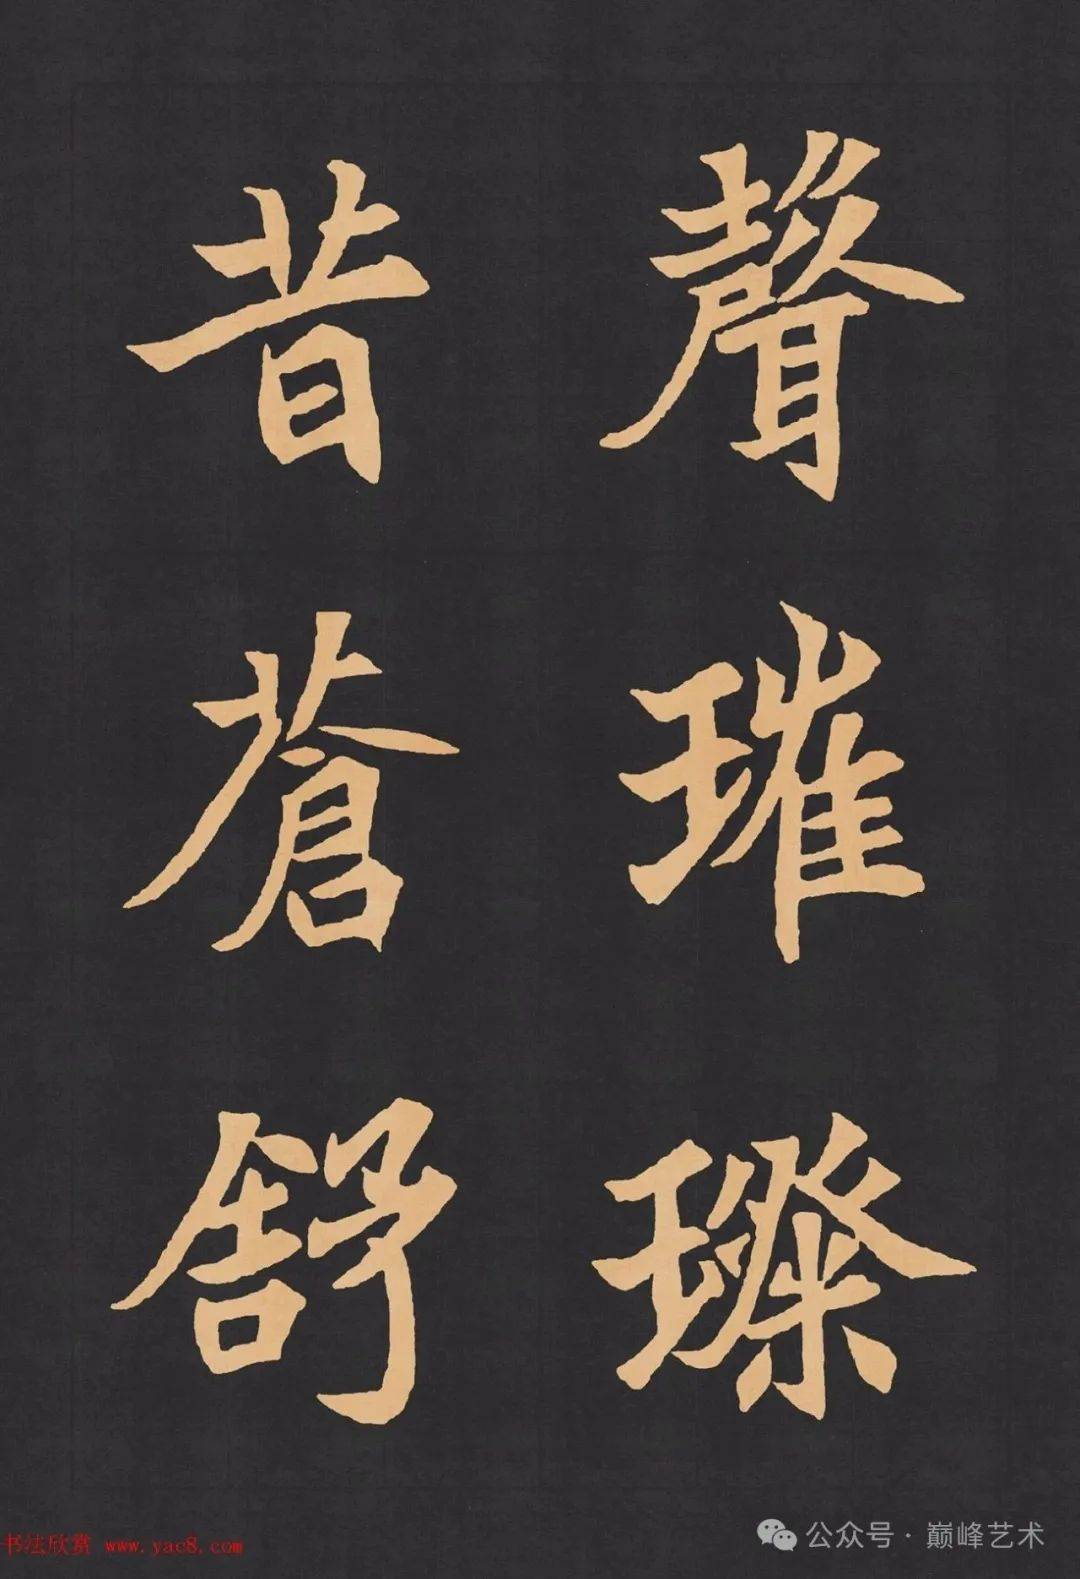 聲璀璨
昔蒼舒
书法欣赏 www.yac8.com
公众号·巅峰艺术